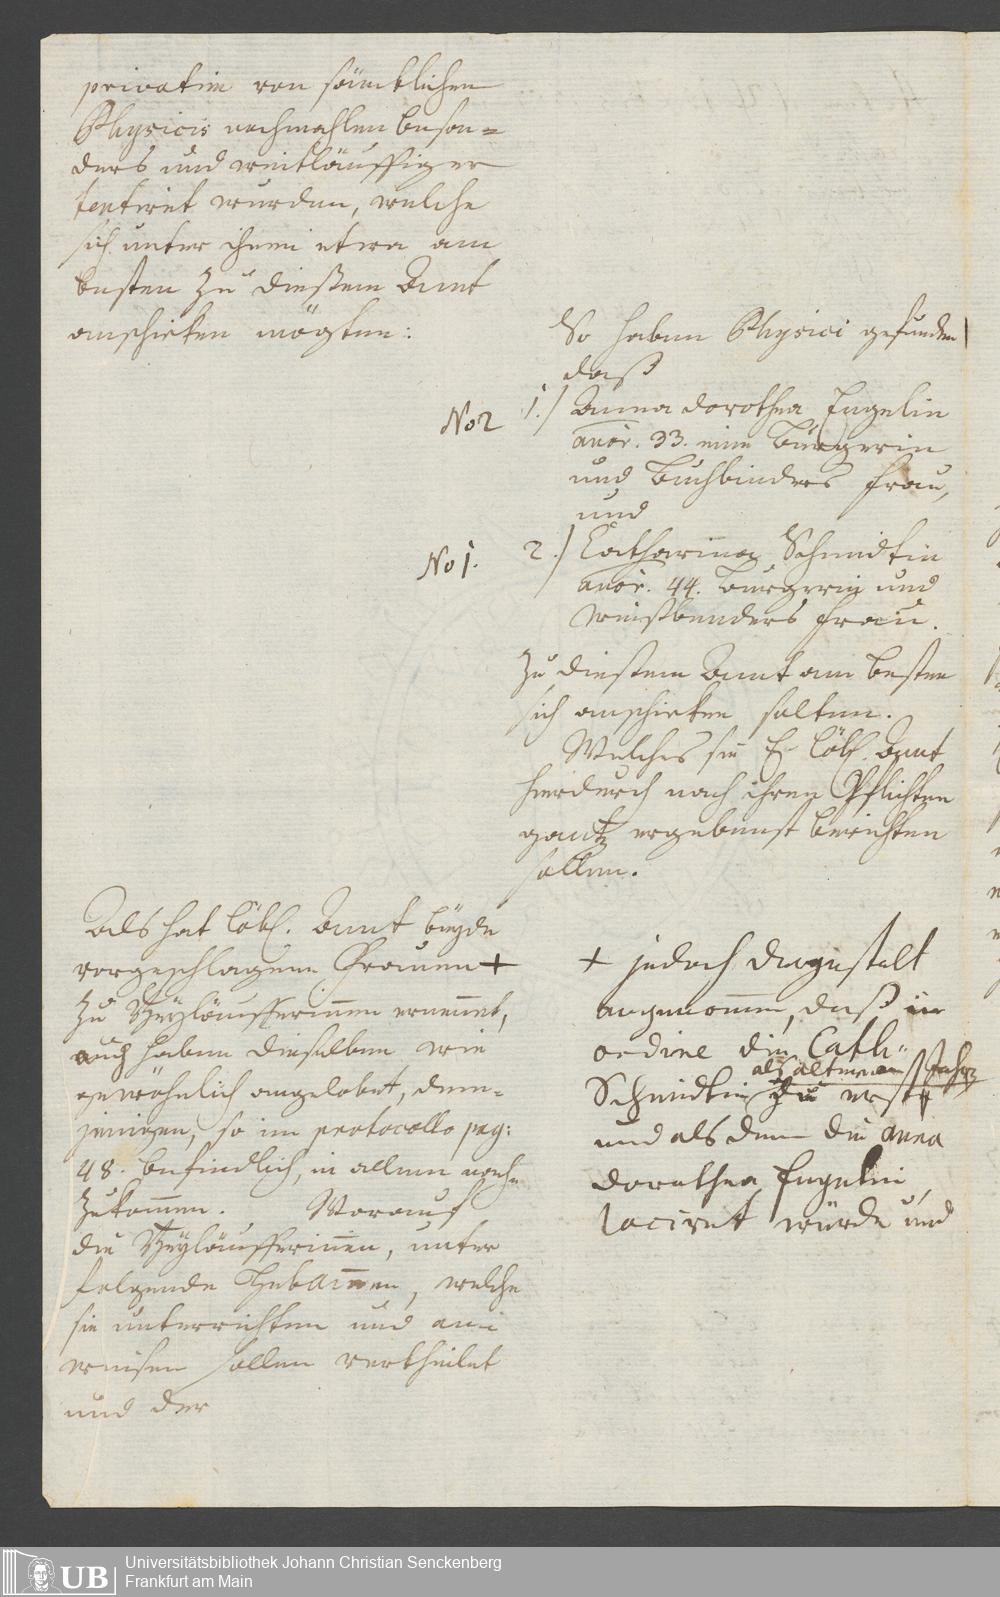 privatim von sämbtlichen
Physicis nochmahlen beson=
ders und weitläuffiger
tentiret wurden, welche
sich unter ihnen etwa am
besten zu dießem Ammt
anschicken mögten:
So haben Physici gefunden
daß
No 2 1.) Anna Dorothea Engelin
annor. 33. eine Burgerin
und Buchbinders frau,
und
No 1. 2.) Catharina Schmidtin
annor. 44. Burgerin und
weißbenders frau.
Zu dießem Ammt am besten
sich anschicken solten.
Welches sie E. löbl. Ammt
hierdurch nach ihren Pflichten
gantz ergebenst berichten
sollen.
Als hat löbl. Ammt beyde
vorgeschlagene Frauen +
zu Beyläufferinnen ernennet,
auch haben dieselben wie
gewöhnlich angelobet, dem=
jenigen, so im protocollo pag:
48. befindlich, in allem nach=
zukommen. Worauf
die Beyläufferinnen, unter
folgende Hebammen, welche
sie unterrichten und an=
weisen sollen vertheilet
und der
+ jedoch dergestalt
angenommen, daß in
ordine die Cath:
als ältere an Jahren
Schmidtin zu erst
und als denn die Anna
Dorothea Engelin
lociret würde und
UB Universitätsbibliothek Johann Christian Senckenberg
Frankfurt am Main